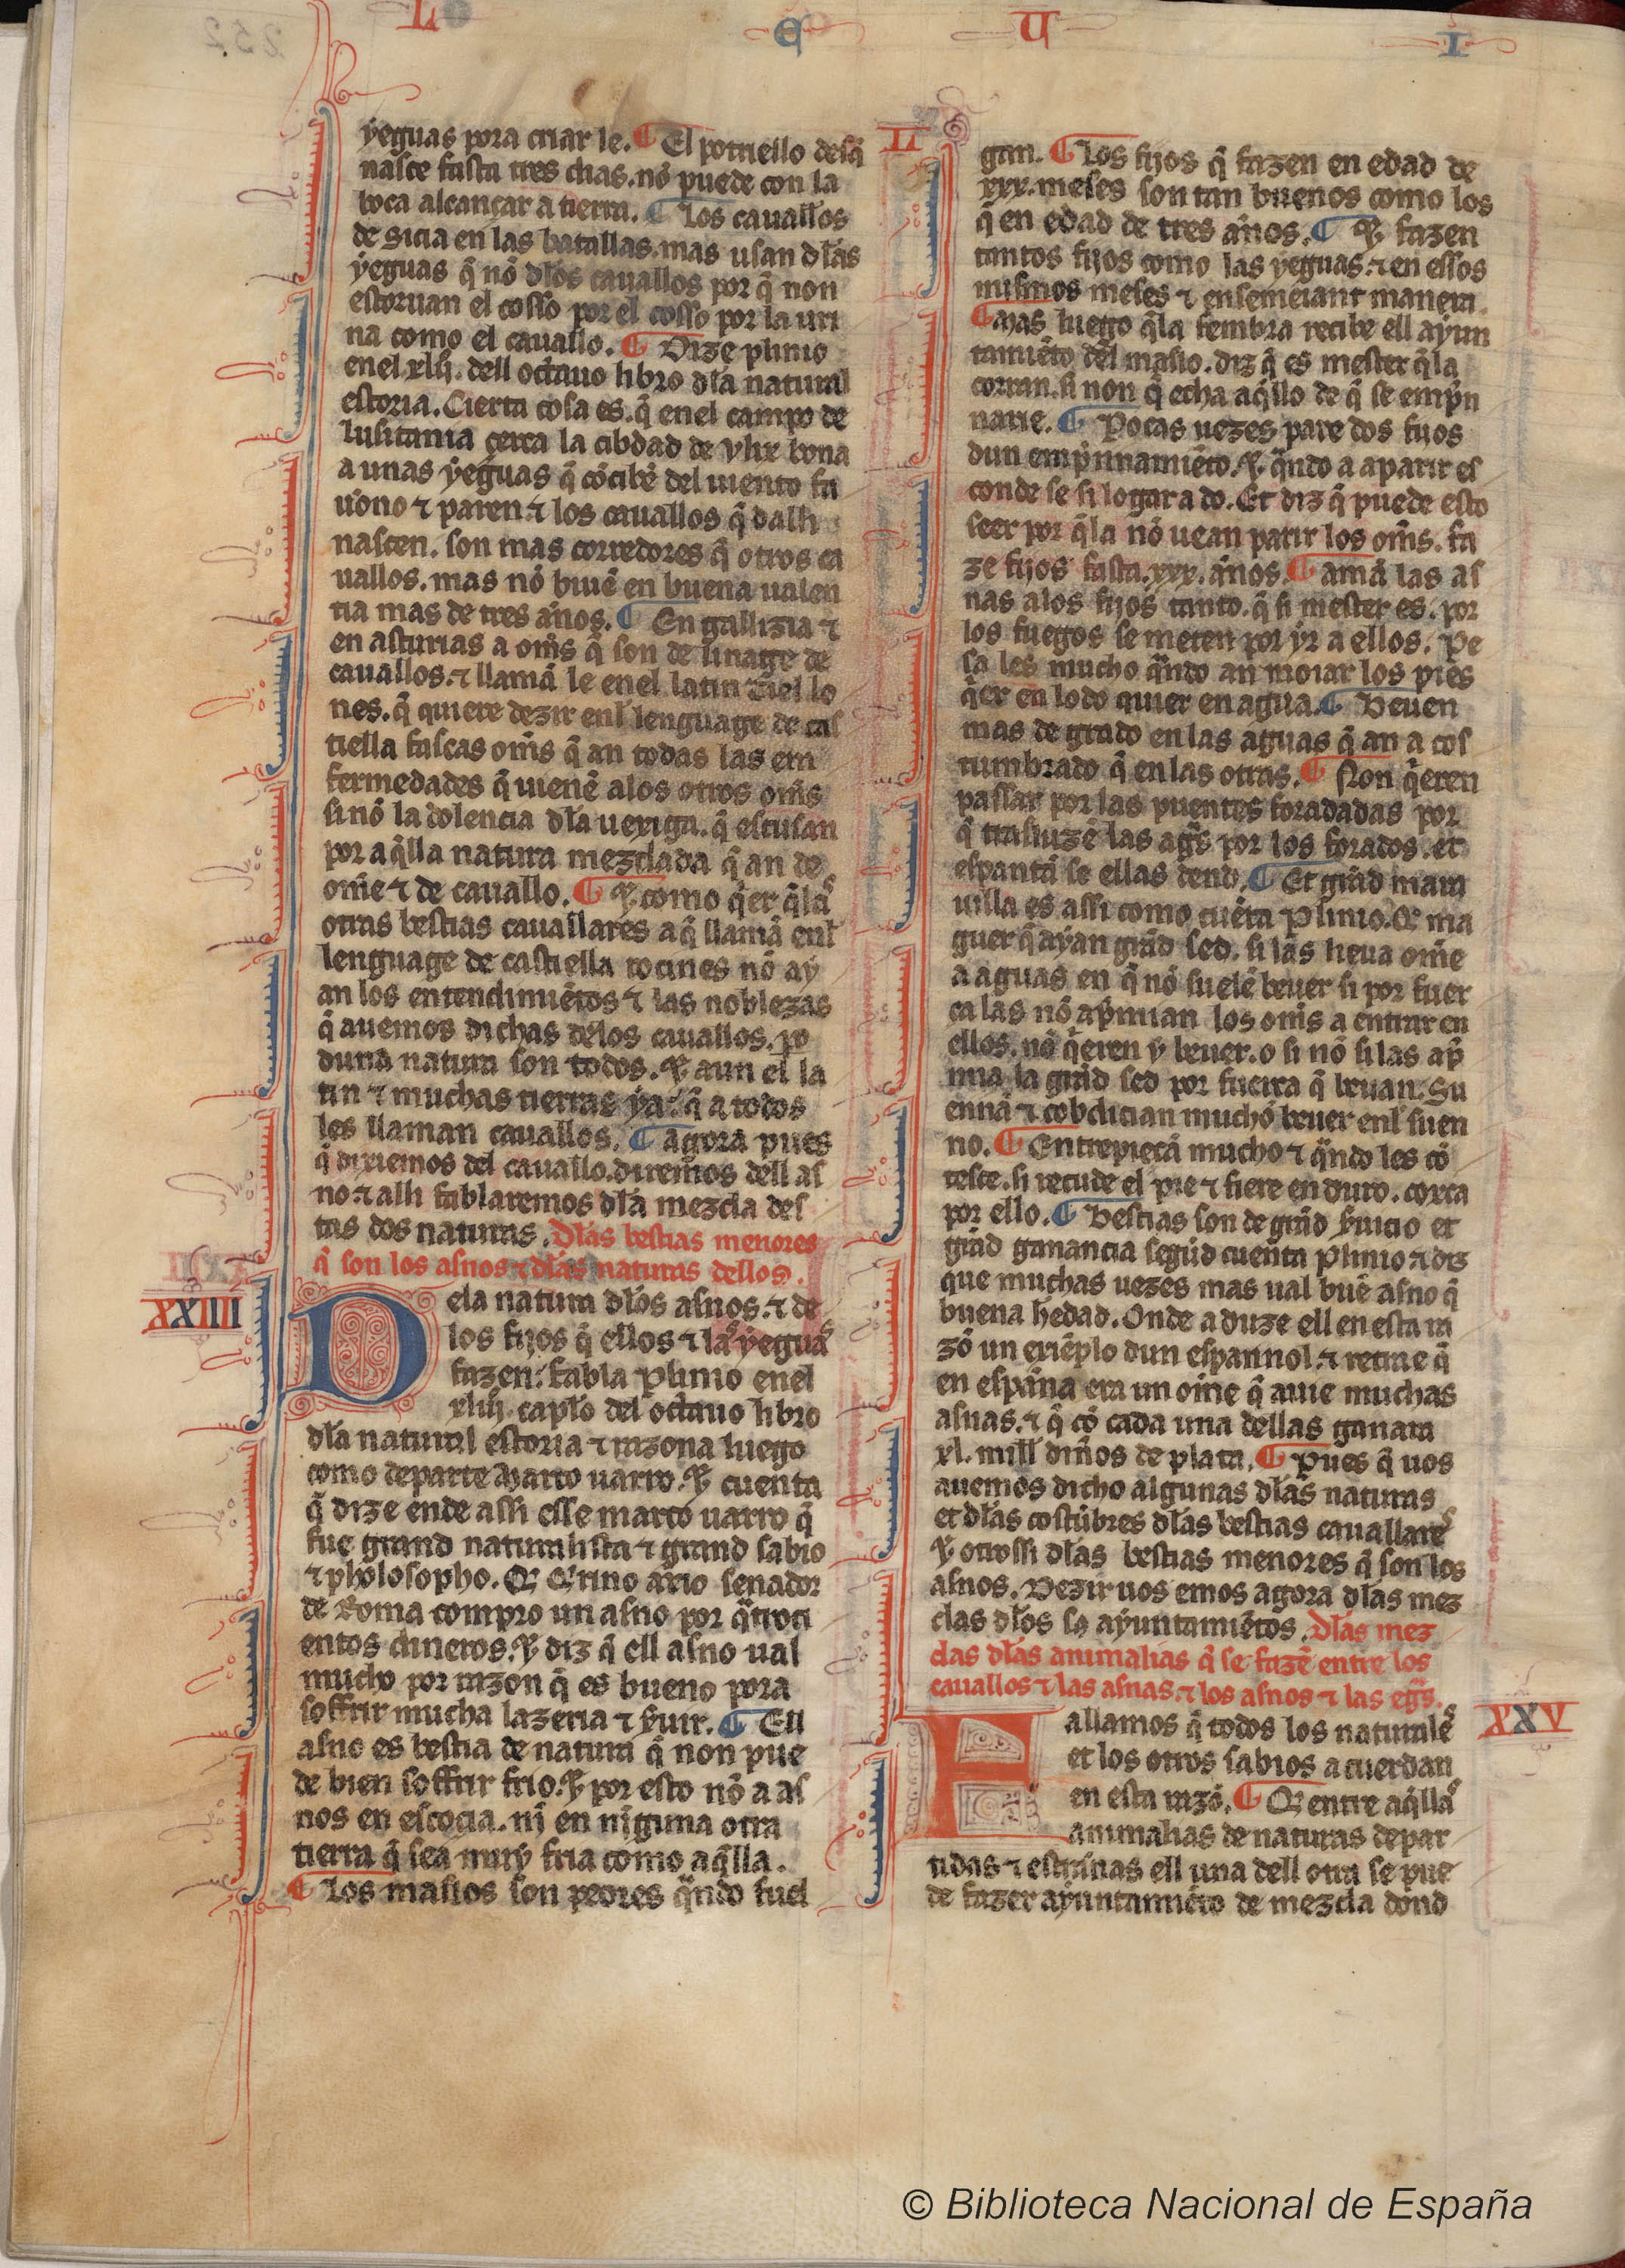 L E U I
yeguas pora criar le. ¶ El potriello desq̄
nasce fasta tres dias. nō puede con la
boca alcançar a tierra. ¶ Los cauallos
de Sicia en las batallas. mas usan dłas
yeguas q̄ nō dłos cauallos por q̄ non
estoruan el cosso por el cosso por la uri
na como el cauallo. ¶ Dize plinio
en el xlij. dell octauo libro dła natural
estoria. Cierta cosa es. q̄ en el campo de
lusitania çerca la cibdad de Ulixbona
a unas yeguas q̄ cōcibē del uiento fa
uono ⁊ paren. ⁊ los cauallos q̄ dalli
nascen. son mas corredores q̄ otros ca
uallos. mas nō biuē en buena ualen
tia mas de tres an̄os. ¶ En gallizia ⁊
en asturias a om̄s q̄ son de linage de
cauallos. ⁊ llamā le en el latin Tiello
nes. q̄ quiere dezir enł lenguage de cas
tiella fascas om̄s q̄ an todas las em
fermedades q̄ uienē alos otros om̄s
si nō la dolencia dła uexiga. q̄ escusan
por aq̄lla natura mezclada q̄ an de
om̄e ⁊ de cauallo. ¶ Et como q̄er q̄las
otras bestias cauallares a q̄ llamā enł
lenguage de castiella rocines nō ay
an los entendimiētos ⁊ las noblezas
q̄ auemos dichas delos cauallos. po
duna natura son todos. Et aun el la
tin ⁊ muchas tierras ya. q̄ a todos
les llaman cauallos. ¶ Agora pues
q̄ dixiemos del cauallo. diremos dell as
no. ⁊ alli fablaremos dła mezcla des
tas dos naturas. Dłas bestias menores
q̄ son los asnos ⁊ dłas naturas dellos.
XXIIII
Dela natura dłos asnos. ⁊ de
los fijos q̄ ellos ⁊ las yeguas
fazen. fabla Plinio en el
xliij. capło del octauo libro
dła natural estoria ⁊ razona luego
como departe Marco uarro. Et cuenta
q̄ dize ende assi esse marco uarro q̄
fue grand naturalista ⁊ grand sabio
⁊ pholosopho. Q̄ Q̄rino acio senador
de Roma compro un asno por q̄troci
entos dineros. Et diz q̄ ell asno ual
mucho por razon q̄ es bueno pora
soffrir mucha lazeria ⁊ seruir. ¶ Ell
asno es bestia de natura q̄ non pue
de bien soffrir frio. Et por esto nō a as
nos en escocia. nj en njguna otra
tierra q̄ sea muy fria como aq̄lla.
¶ Los maslos son peores q̄ndo fuel
L
gan. ¶ Los fijos q̄ fazen en edad de
xxx. meses son tan buenos como los
q̄ en edad de tres an̄os. ¶ Et fazen
tantos fijos como las yeguas. ⁊ en essos
mismos meses ⁊ en semeiant manera.
¶ Mas luego q̄la fembra recibe ell ayun
tamiēto del maslo. diz q̄ es mester q̄la
corran. si non q̄ echa aq̄llo de q̄ se emp̄n
narie. ¶ Pocas uezes pare dos fijos
dun emp̄nnamiēto. Et q̄ndo a a parir es
conde se si logar a do. Et diz q̄ puede esto
seer por q̄la nō uean parir los om̄s. fa
ze fijos fasta .xxx. an̄os. ¶ Amā las as
nas alos fijos tanto. q̄ si mester es. por
los fuegos se meten por yr a ellos. Pe
sa les mucho q̄ndo an moiar los pies
q̄er en lodo quier en agua. ¶ Beuen
mas de grado en las aguas q̄ an a cos
tumbrado q̄ en las otras. ¶ Non q̄eren
passar por las puentes foradadas por
q̄ trasluzē las aḡs por los forados. et
espantā se ellas dend. ¶ Et grād mara
uilla es assi como cuēta Plinio. Q̄ ma
guer q̄ ayan grād sed. si las lieua om̄e
a aguas en q̄ nō suelē beuer si por fuer
ça las nō ap̄mian los om̄s a entrar en
ellos. nō q̄eren y beuer. o si nō si las ap̄
mia la grād sed por fuerça q̄ beuan. Su
ennā ⁊ cobdician mucho beuer enł suen
no. ¶ Entrepieçā mucho ⁊ q̄ndo les cō
tesce. si recude el pie ⁊ fiere en duro. coxea
por ello. ¶ Bestias son de grād seruicio et
grād ganancia segūd cuenta Plinio. ⁊ diz
que muchas uezes mas ual buē asno q̄
buena hedad. Onde aduze ell en esta ra
zō un exiēplo dun espannol. ⁊ retrae q̄
en espan̄a era un om̄e q̄ auie muchas
asnas. ⁊ q̄ cō cada una dellas ganara
xl. mill din̄os de plata. ¶ Pues q̄ uos
auemos dicho algunas dłas naturas
et dłas costūbres dłas bestias cauallares
Et otrossi dłas bestias menores q̄ son los
asnos. Dezir uos emos agora dłas mez
clas dłos sos ayuntamiētos. Dłas mez
clas dłas animalias q̄ se fazē entre los
cauallos ⁊ las asnas. ⁊ los asnos ⁊ las eḡs.
XXV
Fallamos q̄ todos los naturales
et los otros sabios acuerdan
en esta razō. ¶ Q̄ entre aq̄llas
animalias de naturas depar
tidas ⁊ estrannas ell una dell otra se pue
de fazer ayuntamiēto de mezcla dond
© Biblioteca Nacional de España